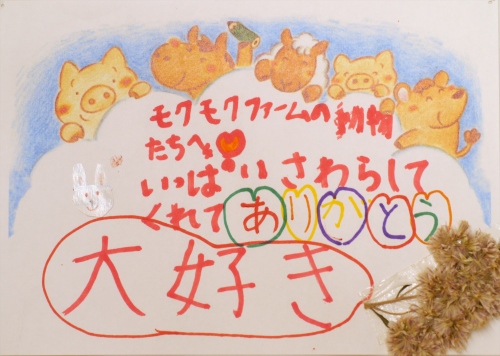 モクモクファームの動物
たちへ
いっぱいさわらして
くれてありがとう
大好き